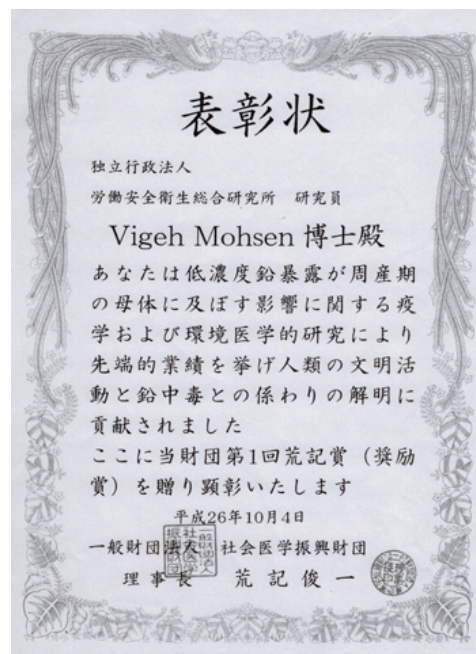 表彰状
独立行政法人
労働安全衛生総合研究所 研究員
Vigeh Mohsen 博士殿
あなたは低濃度鉛暴露が周産期
の母体に及ぼす影響に関する疫
学および環境医学的研究により
先端的業績を挙げ人類の文明活
動と鉛中毒との係わりの解明に
貢献されました
ここに当財団第1回荒記賞（奨励
賞）を贈り顕彰いたします
平成26年10月4日
一般財団法人 社会医学振興財団
理事長 荒記俊一